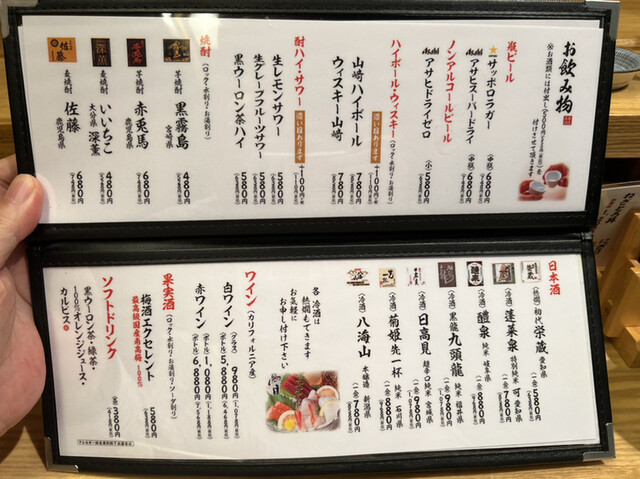 お飲み物
※お酒類には付出し(300円)を
付けさせて頂きます
瓶ビール
★サッポロラガー
(中瓶) 680円
アサヒスーパードライ
(中瓶) 680円
ノンアルコールビール
アサヒドライゼロ
(小) 580円
ハイボール・ウィスキー (ロック・水割り・お湯割り)
濃い目あります +100円
山崎ハイボール 780円
ウィスキー山崎 780円
酎ハイ・サワー
濃い目あります +100円
生レモンサワー 580円
生グレープフルーツサワー 580円
黒ウーロン茶ハイ 580円
焼酎 (ロック・水割り・お湯割り)
芋焼酎 黒霧島 宮崎県 480円
芋焼酎 赤兎馬 鹿児島県 680円
麦焼酎 いいちこ深薫 大分県 480円
麦焼酎 佐藤 鹿児島県 680円
日本酒
(熱燗) 初代 栄蔵 愛知県 (一合) 580円
(冷酒) 蓬莱泉 特別純米 可 愛知県 (一合) 880円
(冷酒) 醴泉 純米 岐阜県 (一合) 880円
(冷酒) 黒龍 九頭龍 純米 福井県 (一合) 980円
(冷酒) 日高見 超辛口純米 宮城県 (一合) 980円
(冷酒) 菊姫 先一杯 純米 石川県 (一合) 880円
(冷酒) 八海山 本醸造 新潟県 (一合) 780円
各冷酒は
熱燗もできます
お気軽に
お申し付け下さい
ワイン (カリフォルニア産)
白ワイン (グラス) 980円
(ボトル) 5,880円
赤ワイン (グラス) 1,080円
(ボトル) 6,880円
果実酒 (ロック・水割り・お湯割り・ソーダ割り)
梅酒 エクセレント 580円
最高級国産南高梅 100%
ソフトドリンク
黒ウーロン茶・緑茶・
100%オレンジジュース・
カルピス
(各) 380円